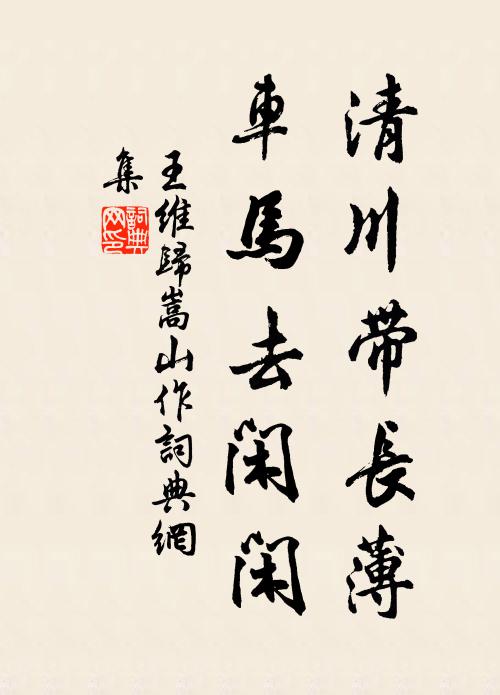 清川帶長薄
車馬去閑閑
王維歸嵩山作詞典網
集
詞典
网印